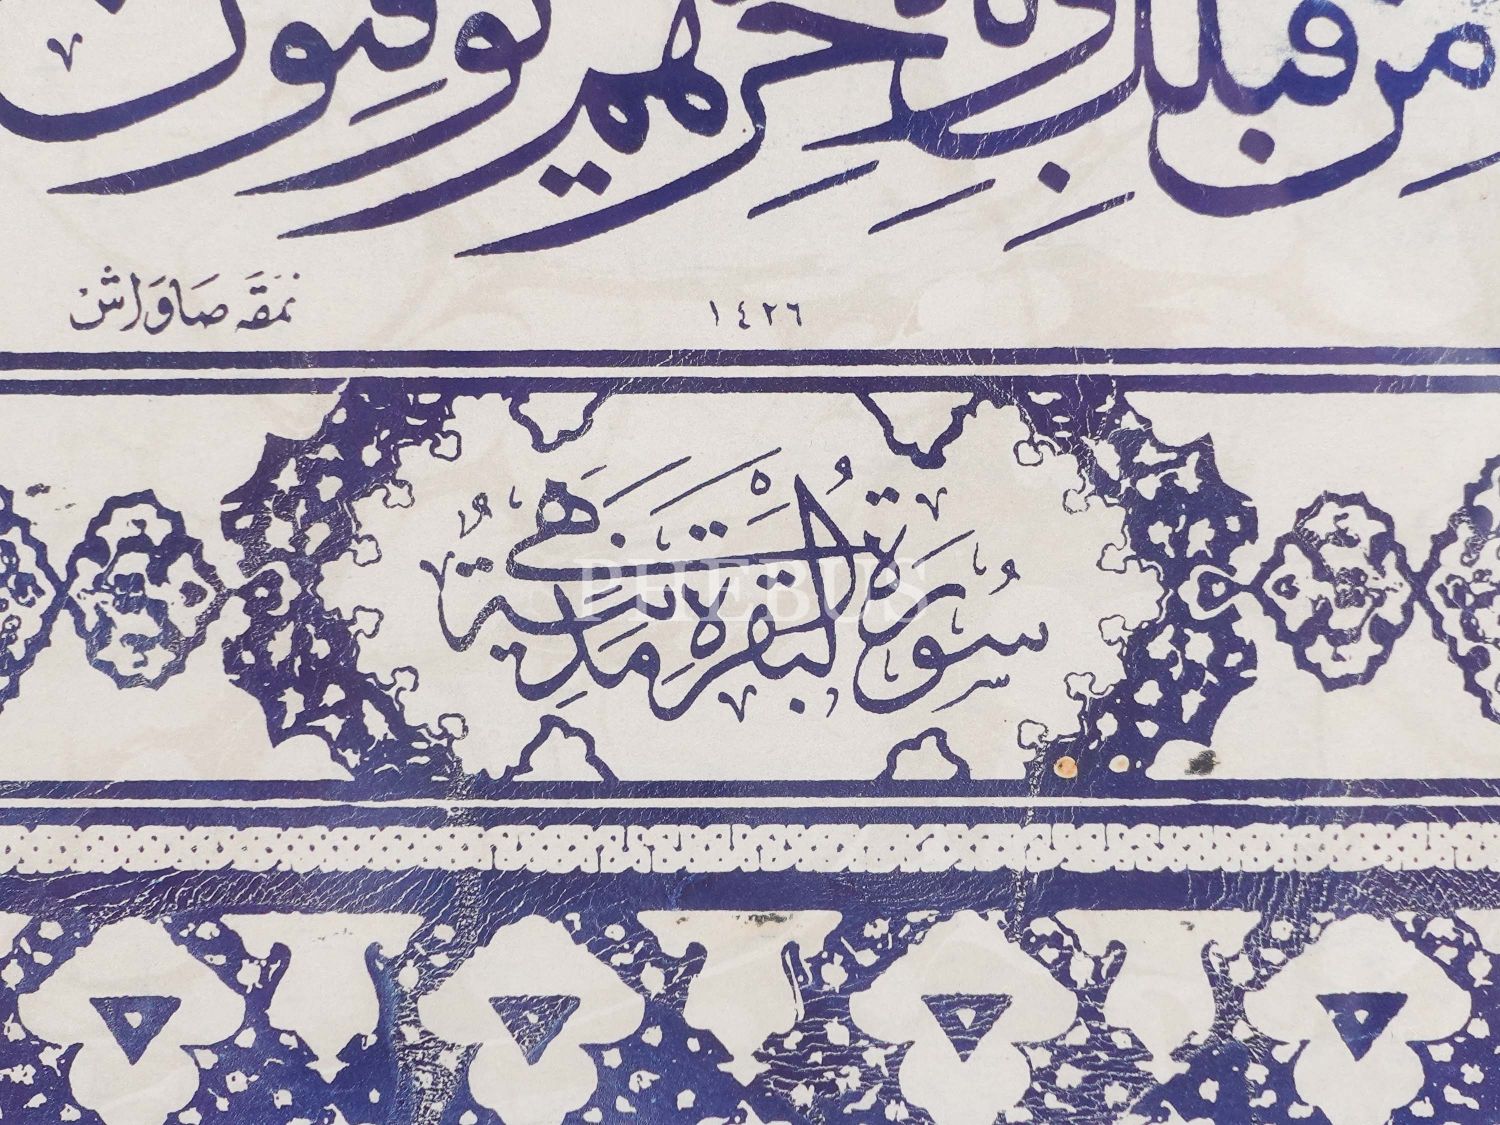 من قبلك وبالآخرة هم يوقنون
نمقه صاواش
١٤٢٦
سورة البقرة مدنية
PHEBUS